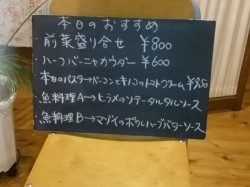 本日のおすすめ
・前菜盛り合せ ¥800
・ハーフバーニャカウダー ¥600
本日のパスタ→ベーコンとキノコのトマトクリーム
・魚料理A→ヒラメのソテータルタルソース
・魚料理B→マゾイのポワレハーブバターソース